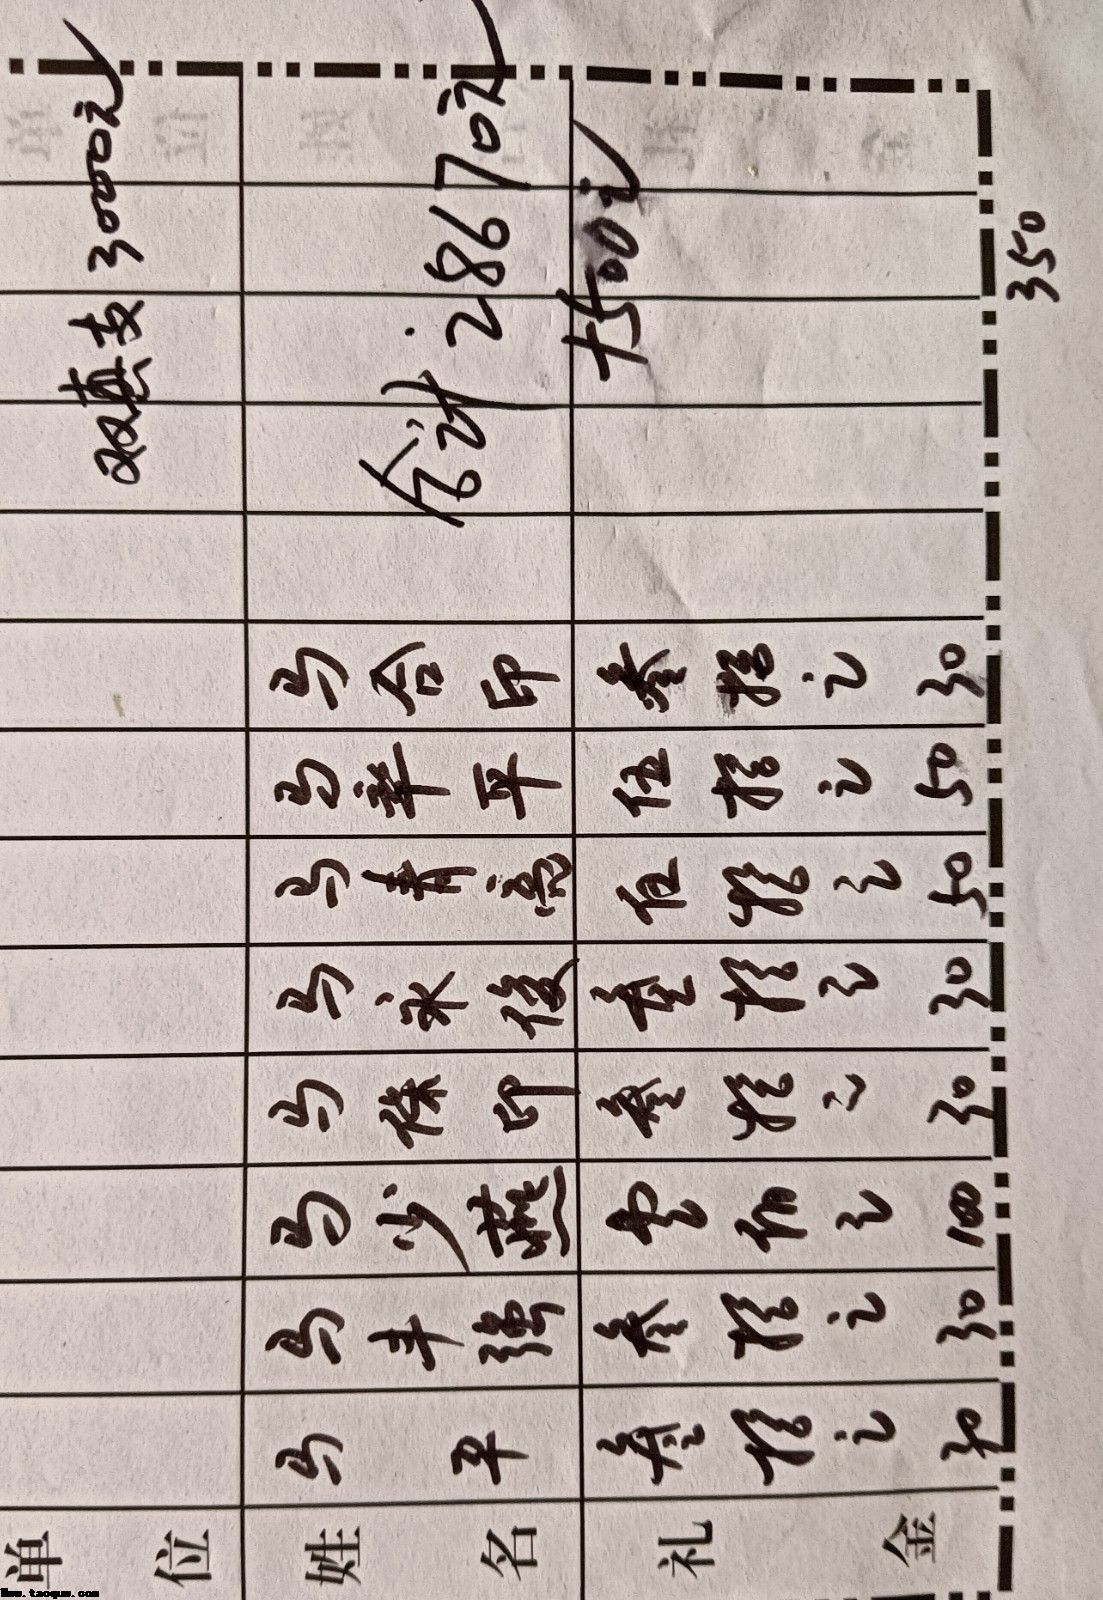 单位 姓名 礼金
马平 叁拾元 30
马丰强 叁拾元 30
马少燕 壹佰元 100
马保印 叁拾元 30
马永俊 叁拾元 30
马青亮 伍拾元 50
马华平 伍拾元 50
马合印 叁拾元 30
双惠支3000元
合计28670元
+500元
350
www.taoquw.com